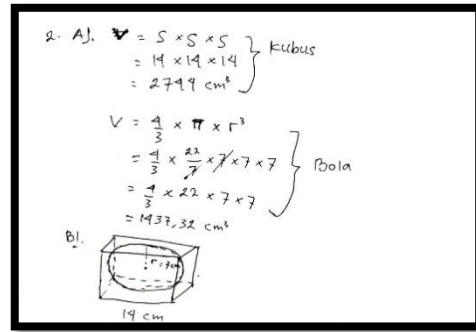 2. A). V = S × S × S
= 14 × 14 × 14
= 2744 cm³
} kubus
V = 4/3 × π × r³
= 4/3 × 22/7 × 7 × 7 × 7
= 4/3 × 22 × 7 × 7
= 1437,32 cm³
} Bola
B).
r = 7cm
14 cm